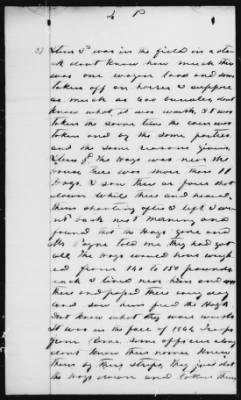 P
3) Item 2d was in the field in a stack
dont know how much there
was one wagon load and some
taken off on horses I suppose
as much as 600 bundles dont
know what it was worth It was
taken the same time the corn was
taken and by the same parties
and the same reasons given
Item 3d The Hogs was near the
house there was more than 11
Hogs. I saw them as fore shot
down while there and heard
them shooting after I left I went
back next morning and
found that the Hogs gone and
Mr Payne told me they had got
all The Hogs would have weigh
ed from 140 to 150 pounds
each I lived near him and was
there and helped there every day
and saw him feed the Hogs
dont know what they was worth
It was in the fall of 1864 Troops
from Rome. some officers along
dont know their names Knew
them by their straps, they just shot
the Hogs down and taken them